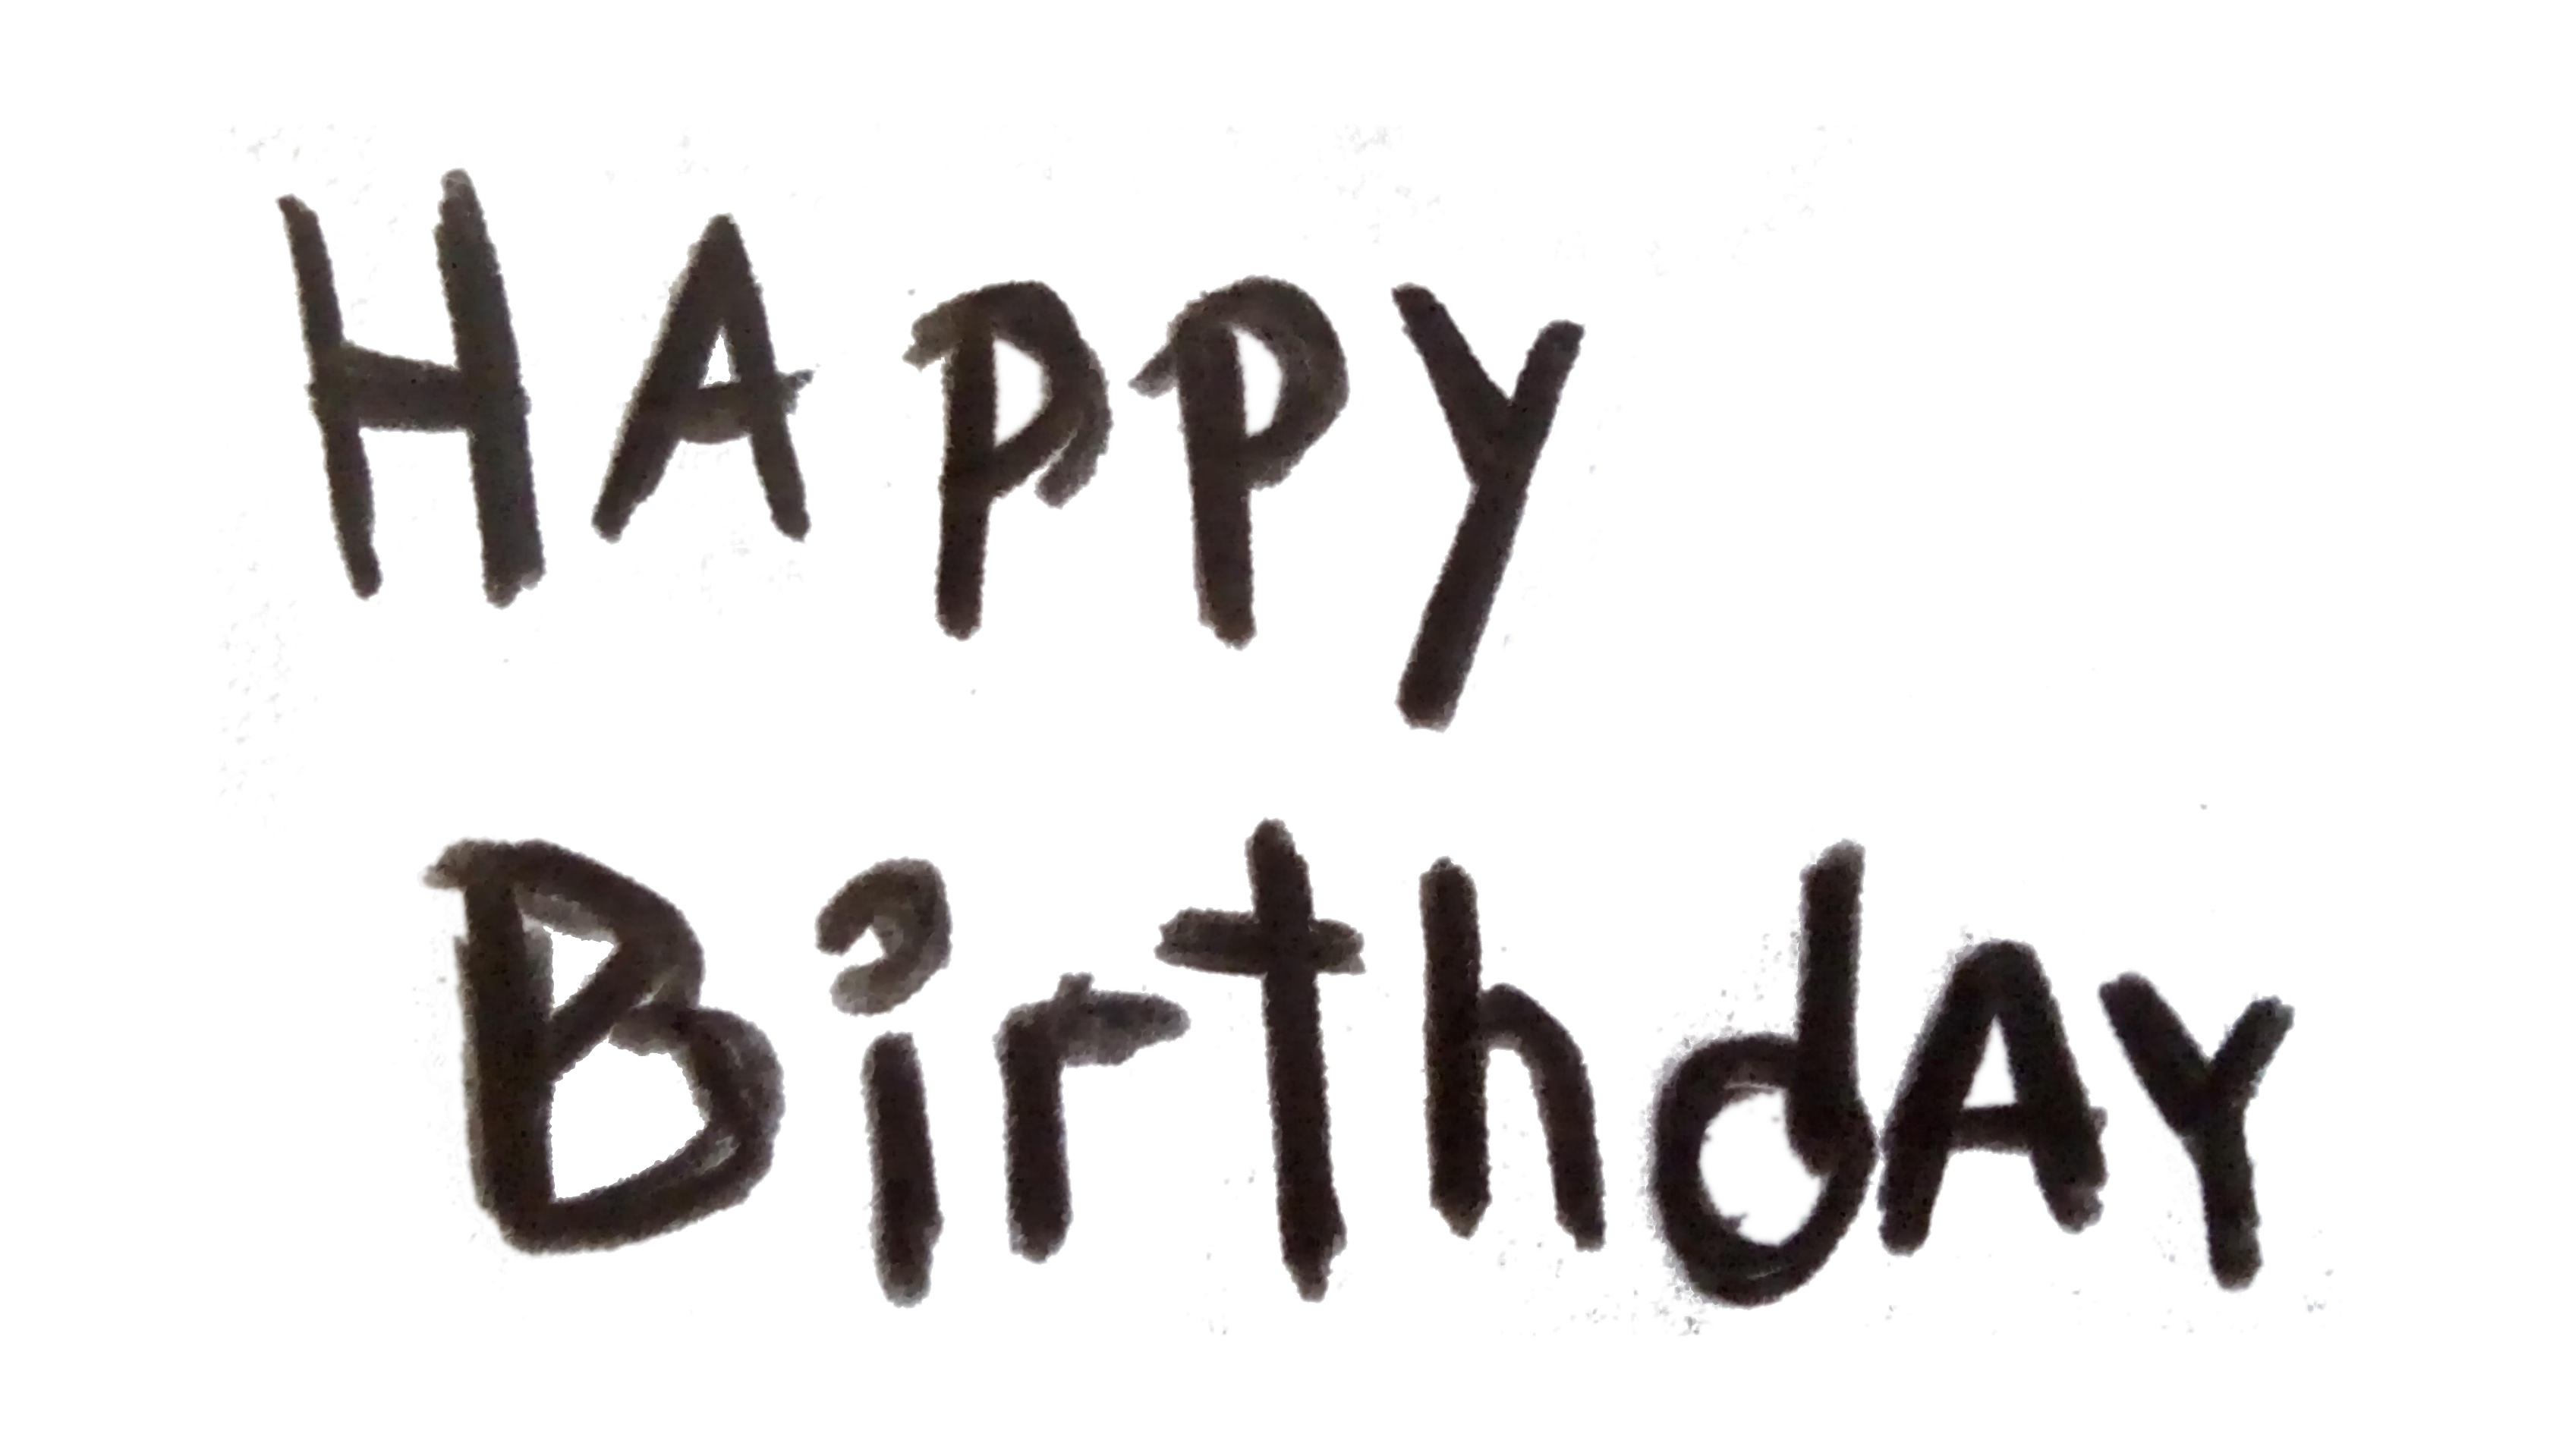 HAppy
BirthdAY